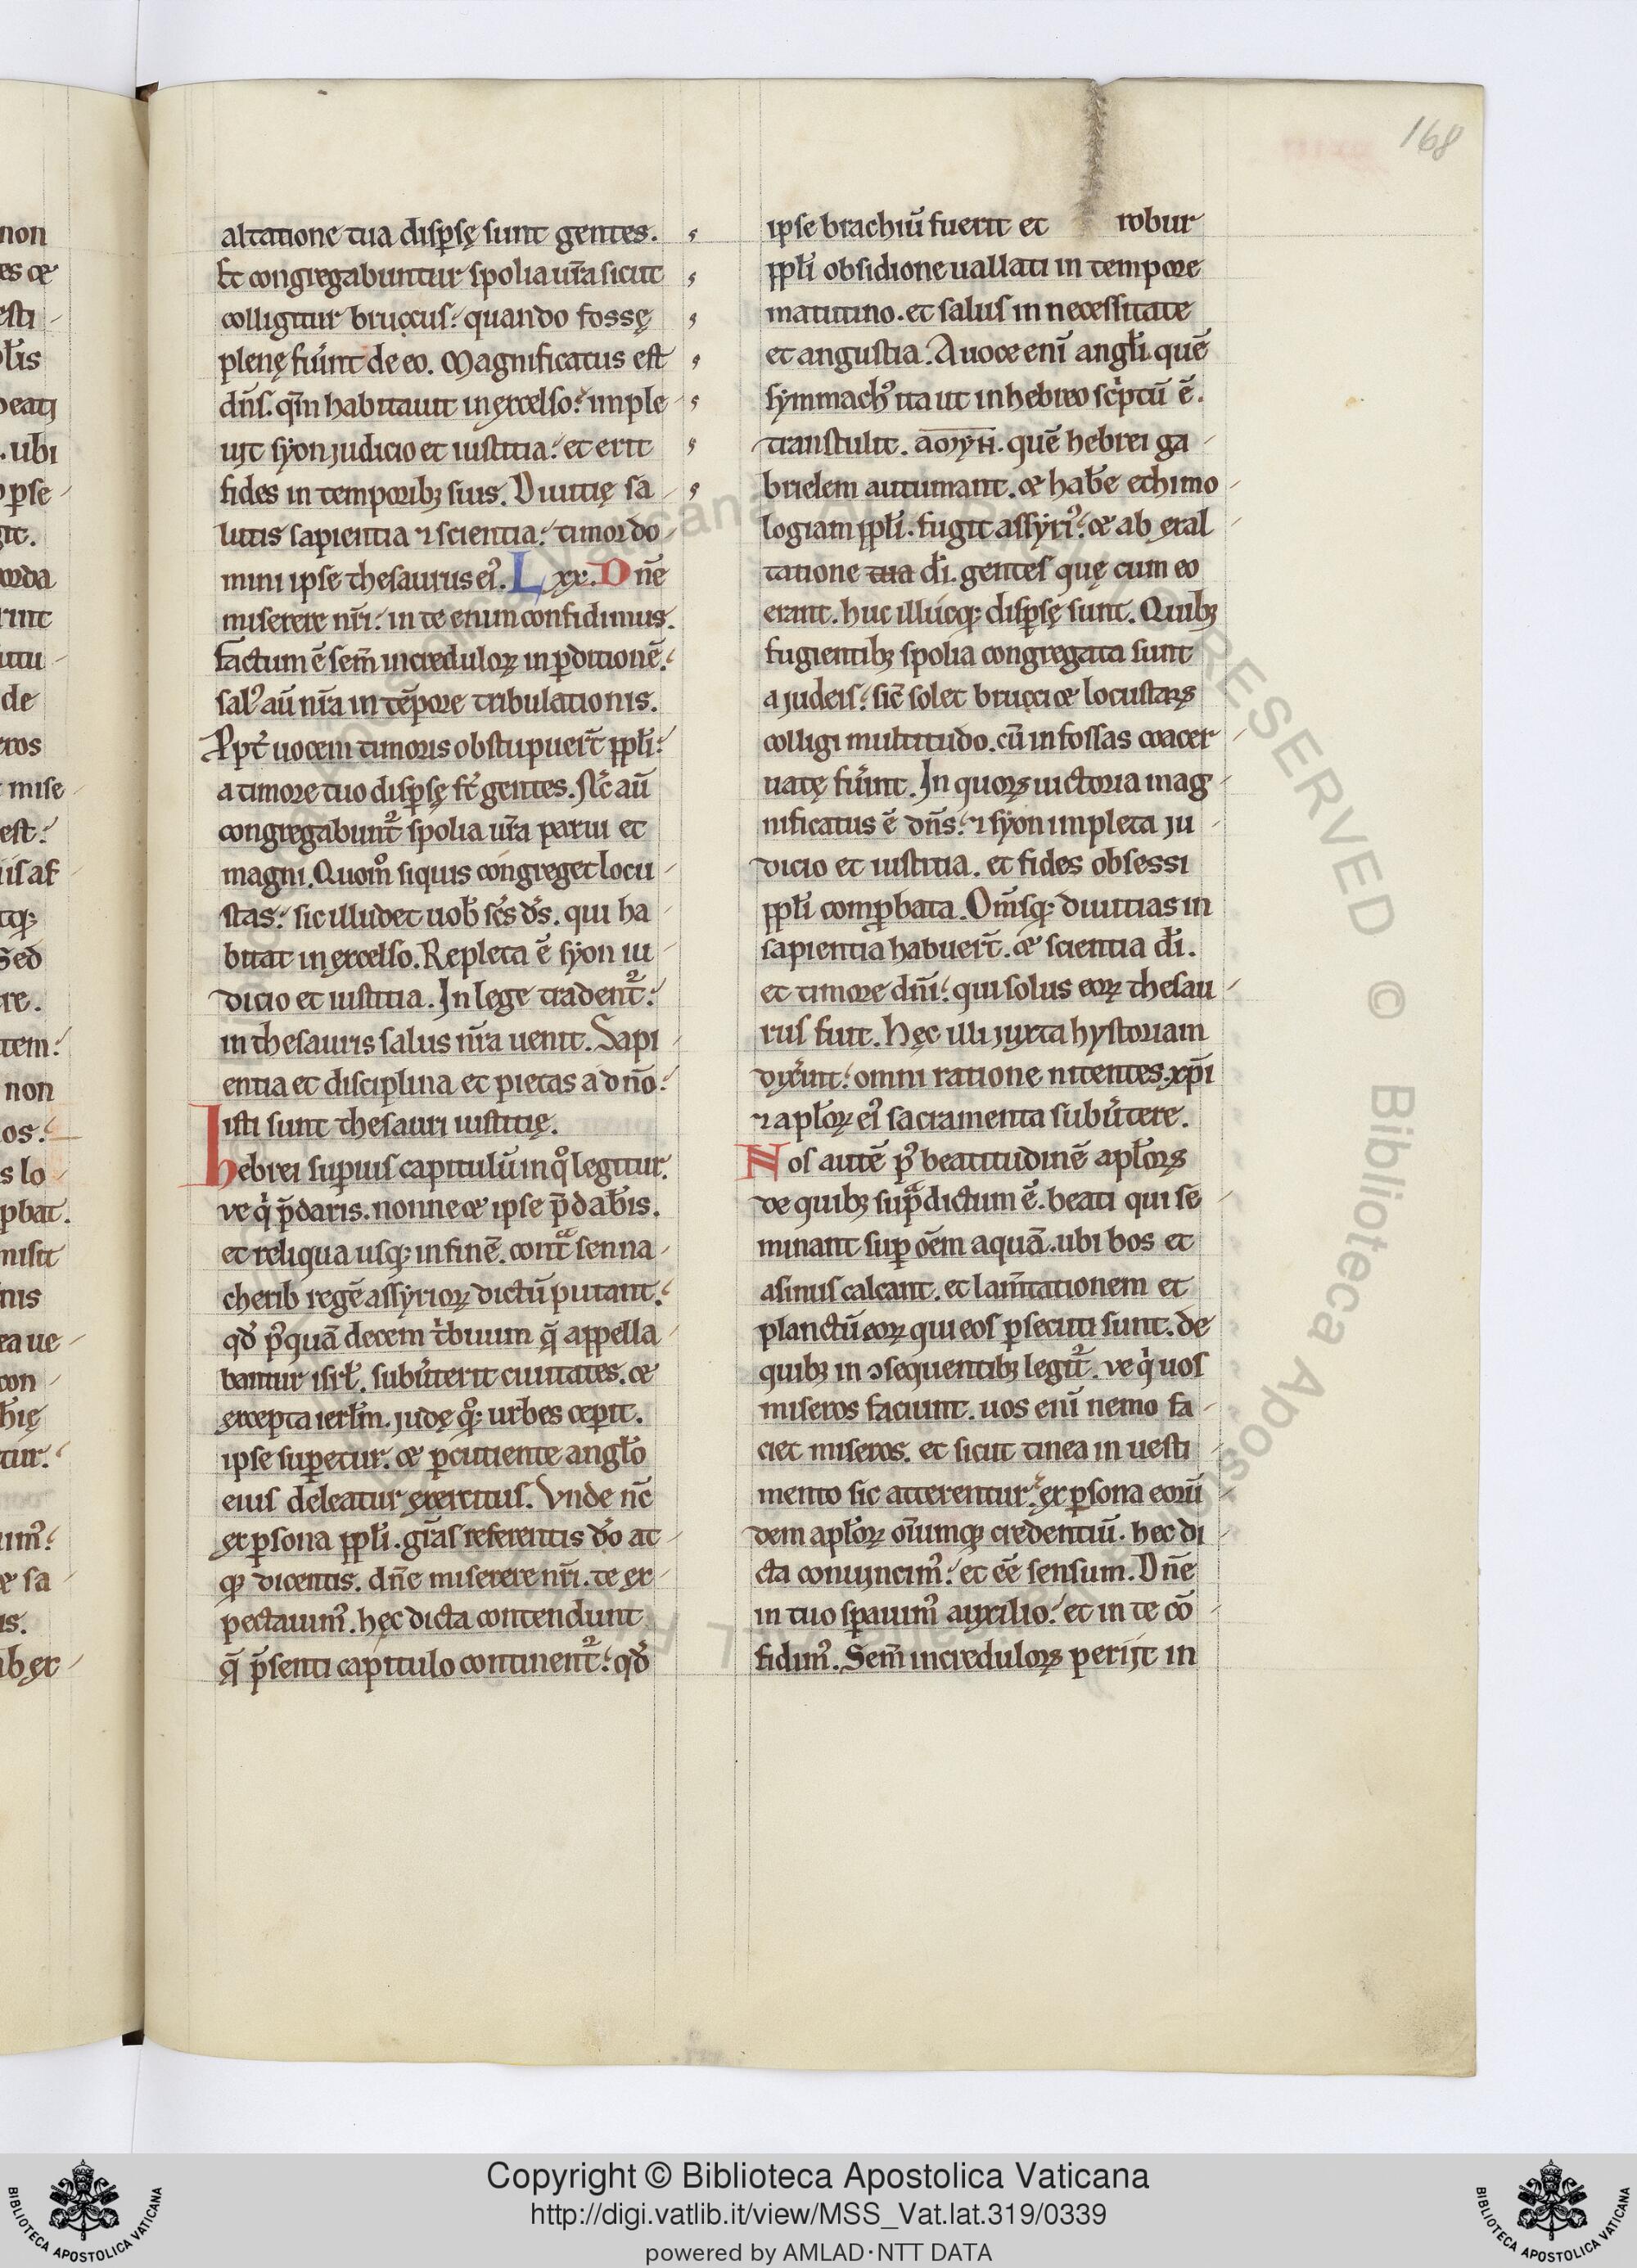 168
altatione tua disp̱sę sunt gentes.
Et congregabuntur spolia ur̄a sicut
colligitur bruccus: quando fossę
plenę fuı̄nt de eo. Magnificatus est
dn̄s. qm̄ habitauit in excelso: imple
uit syon judicio et iustitia: et erit
fides in temporib; suis. Diuitię sa
lutis sapientia ⁊ scientia: timor do
mini ipse thesaurus eı̓. Lxx. Dn̄e
miserere nr̄i: in te enim confidimus.
factum ē sem̄ increduloꝝ in ꝑditionē:
salꝰ aū nr̄a in tēpore tribulationis.
Ppt̄ uocem timoris obstupuer̄t ppl̄i:
a timore tuo disꝑsę st̄ gentes. Nc̄ aū
congregabunt᷑ spolia ur̄a parui et
magni. Quom̊ siquis congreget locu
stas: sic illudet uob̄ sc̄s d̄s. qui ha
bitat in excelso. Repleta ē syon iu
dicio et iustitia. In lege tradent᷑:
in thesauris salus nr̄a uenit. Sapi
entia et disciplina et pietas a dn̄o:
Isti sunt thesauri iustitię.
Hebrei suꝑius capitulū in qͦ legitur.
ve qͥ p̄daris. nonne & ipse p̄dab̄is.
et reliqua usq; in finē. contᵃ senna
cherib regē assyrioꝝ dictū putant:
qd̄ pꝰquā decem tͥbuum q̄ appella
bantur isrl̄. subu̓terit ciuitates. &
excepta ierl̄m. judę q̊; urbes cepit.
ipse suꝑetur. & ꝑcutiente angl̄o
eius deleatur exercitus. Vnde nc̄
ex ꝑsona ppl̄i. gr̄as referentis d̄o at
q; dicentis. dn̄e miserere nr̄i. te ex
pectauimꝰ. hęc dicta contendunt
q̄ p̄senti capitulo continent᷑: qd̄
ipse brachiū fuerit et robur
ppl̄i obsidione uallati in tempore
matutino. et salus in necessitate
et angustia. A uoce eni̅ angl̄i. quē
symmachꝰ ita ut in hebreo scͥptū ē.
transtulit. quē hebrei ga
brielem autumant. & hab̄e ethimo
logiam ppl̄i. fugit assyriꝰ: & ab exal
tatione tua d̄i. gentes quę cum eo
erant. huc illucq; disꝑsę sunt. Quib;
fugientib; spolia congregata sunt
a judeis: sic̄ solet brucci & locustaꝝ
colligi multitudo. cū in fossas coacer
uatę fuı̄nt. In quoꝝ uictoria mag
nificatus ē dn̄s: ⁊ syon impleta ju
dicio et iustitia. et fides obsessi
ppl̄i comꝓbata. Om̄sq; diuitias in
sapientia habuer̄t. & scientia d̄i.
et timore dn̄i: qui solus eoꝝ thesau
rus fuit. Hęc illi juxta hystoriam
dixı̄nt: omni ratione nitentes. xp̄i
⁊ apl̄oꝝ eı̓ sacramenta subu̓tere.
Nos autē pꝰ beatitudinē apl̄oꝝ
de quib; supᵃdictum ē. beati qui se
minant suꝑ oēm aquā. ubi bos et
asinus calcant. et lam̄tationem et
planctū eoꝝ qui eos ꝑsecuti sunt. de
quib; in ↄsequentib; legit᷑. ve qͥ uos
miseros faciunt. uos eni̅ nemo fa
ciet miseros. et sicut tinea in uesti
mento sic atterentur: ex ꝑsona eorū
dem apl̄oꝝ om̄iumq; credentiū. hec di
cta conuincimꝰ: et ēe sensum. Dn̄e
in tuo sꝑauimꝰ auxilio: et in te cō
fidimꝰ. Sem̄ increduloꝝ perijt in
Copyright © Biblioteca Apostolica Vaticana
http://digi.vatlib.it/view/MSS_Vat.lat.319/0339
powered by AMLAD·NTT DATA
BIBLIOTECA APOSTOLICA VATICANA
BIBLIOTECA APOSTOLICA VATICANA